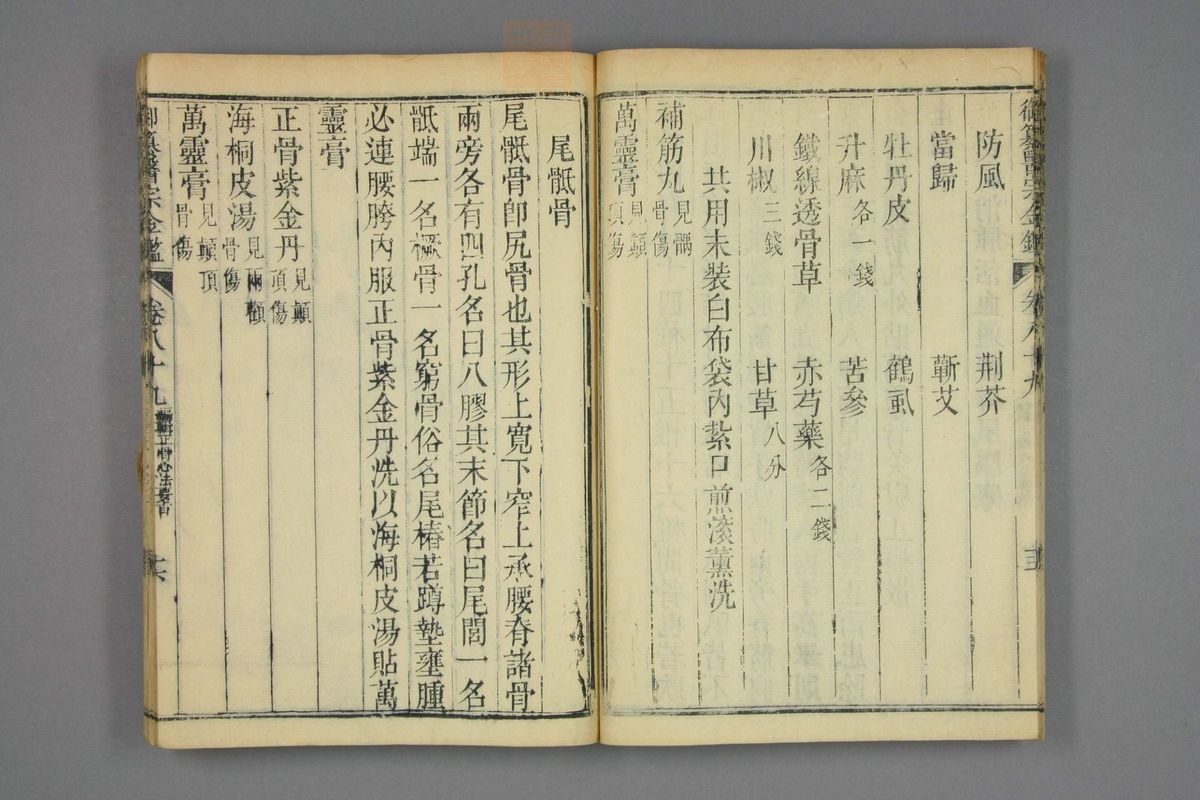 防風 荊芥
當歸 蘄艾
牡丹皮 鶴虱
升麻各一錢 苦參
鐵線透骨草 赤芍藥各二錢
川椒三錢 甘草八分
共用末裝白布袋內紮口煎滾薰洗
補筋丸見髃骨傷
萬靈膏見顛頂傷
尾骶骨
尾骶骨卽尻骨也其形上寬下窄上承腰脊諸骨
兩旁各有四孔名曰八膠其末節名曰尾閭一名
骶端一名橛骨一名窮骨俗名尾椿若蹲墊壅腫
必連腰胯內服正骨紫金丹洗以海桐皮湯貼萬
靈膏
正骨紫金丹見顛頂傷
海桐皮湯見兩顴骨傷
萬靈膏見顛頂骨傷
御纂醫宗金鑑 卷八十九 編輯正骨心法要旨